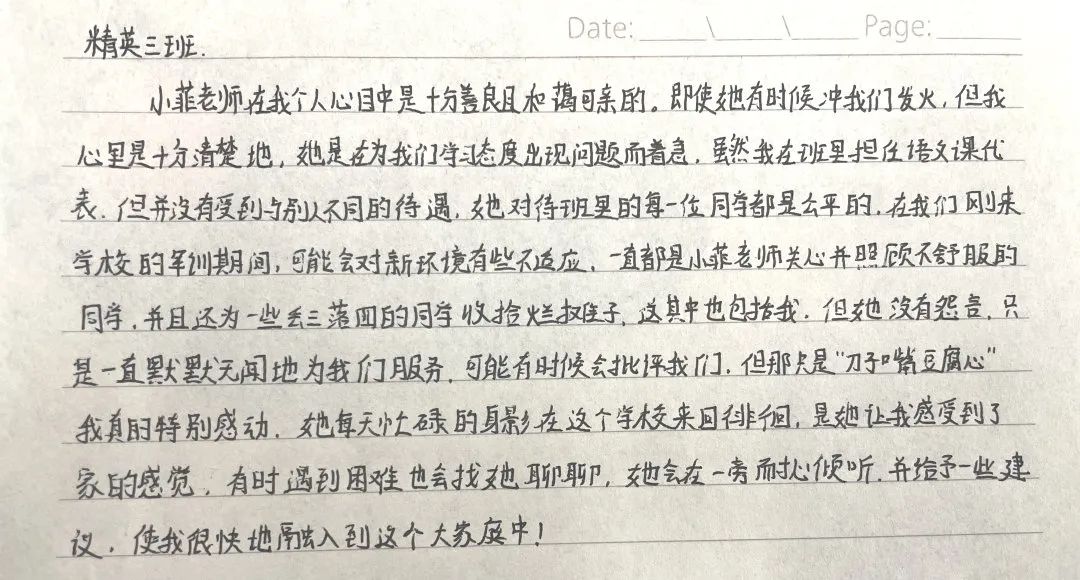 Date:____\____\____Page:______
精英三班.
小菲老师在我个人心目中是十分善良且和蔼可亲的。即使她有时候冲我们发火,但我
心里是十分清楚地,她是在为我们学习态度出现问题而着急,虽然我在班里担任语文课代
表,但并没有受到与别人不同的待遇,她对待班里的每一位同学都是公平的,在我们刚来
学校的军训期间,可能会对新环境有些不适应,一直都是小菲老师关心并照顾不舒服的
同学,并且还为一些丢三落四的同学收拾烂摊子,这其中也包括我.但她没有怨言,只
是一直默默无闻地为我们服务,可能有时候会批评我们,但那只是"刀子嘴豆腐心"
我真的特别感动.她每天忙碌的身影在这个学校来回徘徊,是她让我感受到了
家的感觉.有时遇到困难也会找她聊聊,她会在一旁耐心倾听.并给予一些建
议.使我很快地融入到这个大家庭中!